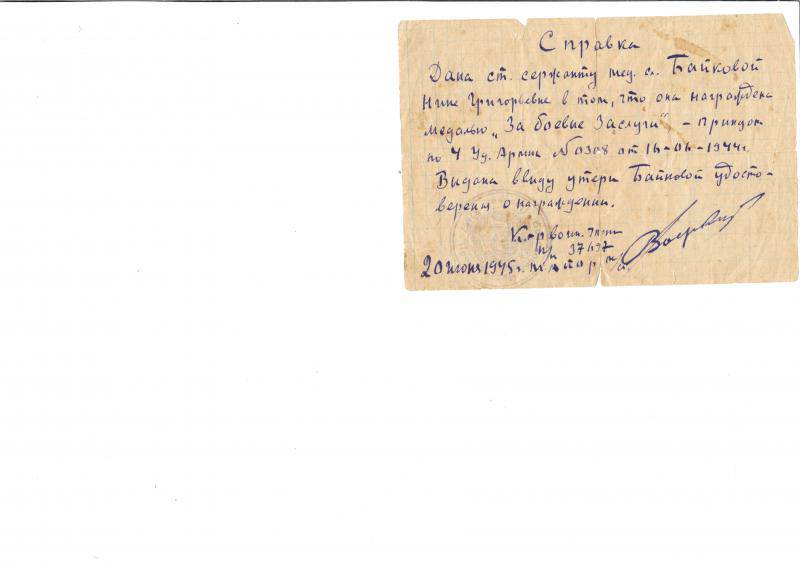 Справка
Дана ст. сержанту мед. сл. Байковой
Нине Григорьевне в том, что она награждена
медалью „За боевые Заслуги" – приказом
по 4 Уд. Армии №0308 от 16-06-1944г.
Выдана ввиду утери Байковой удосто-
верения о награждении.
п/п 37697
20 июня 1945г. майор м/с